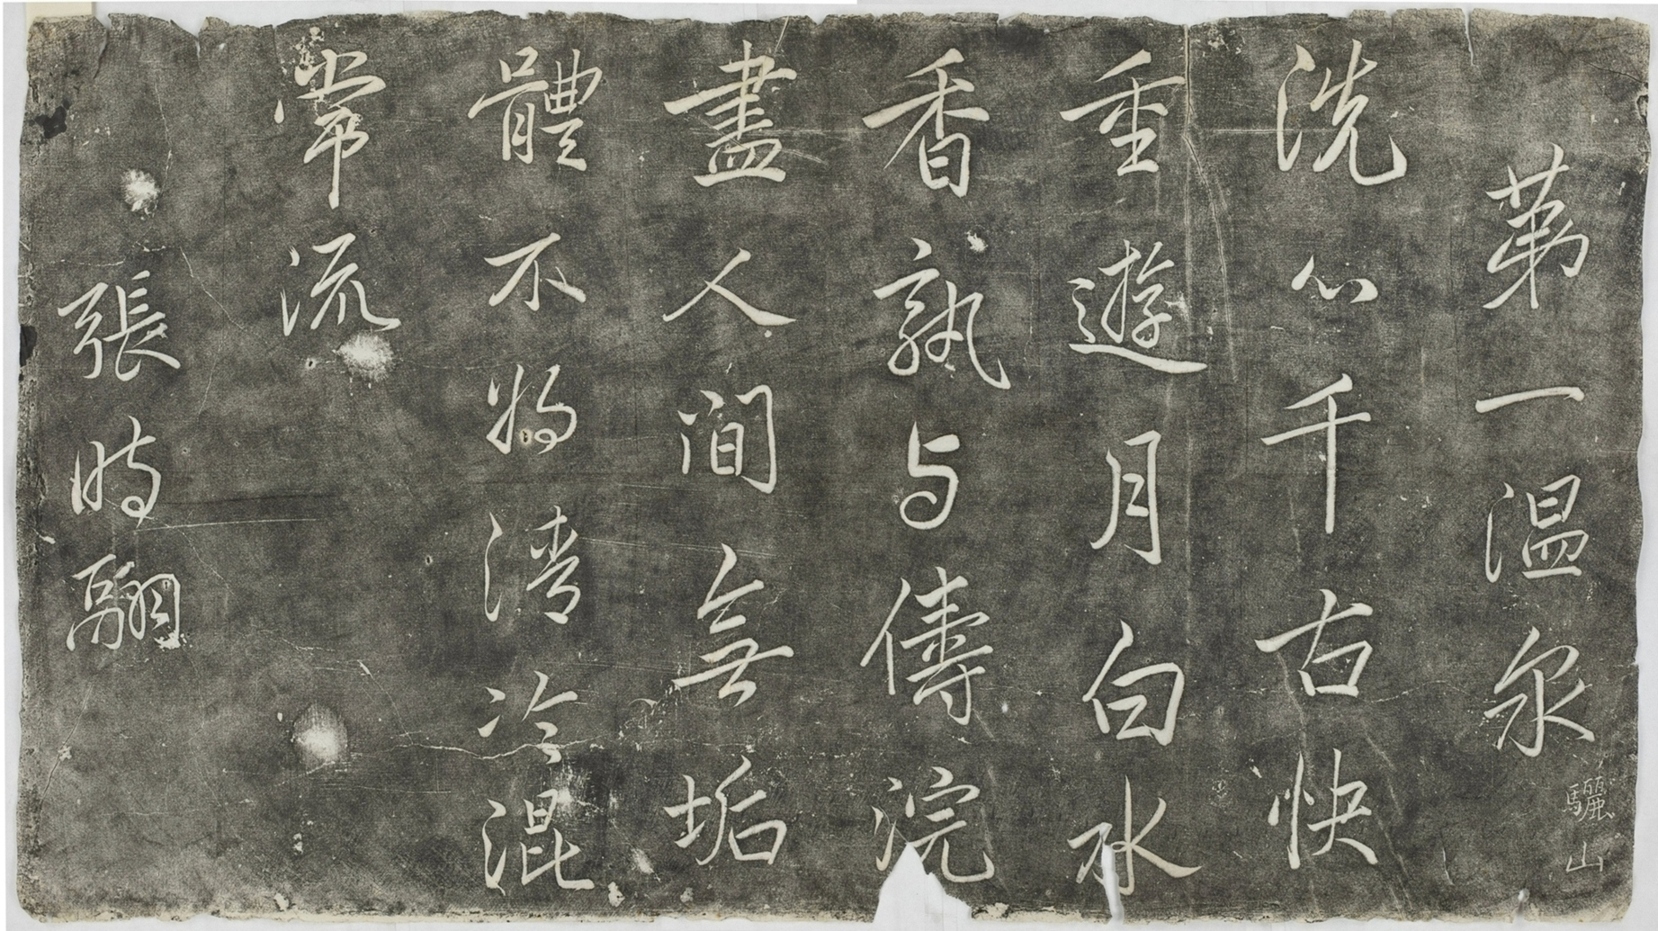 第一温泉
驪山
洗心千古快
重遊月白水
香孰与儔浣
盡人间無垢
體不將清冷混
常流
張時